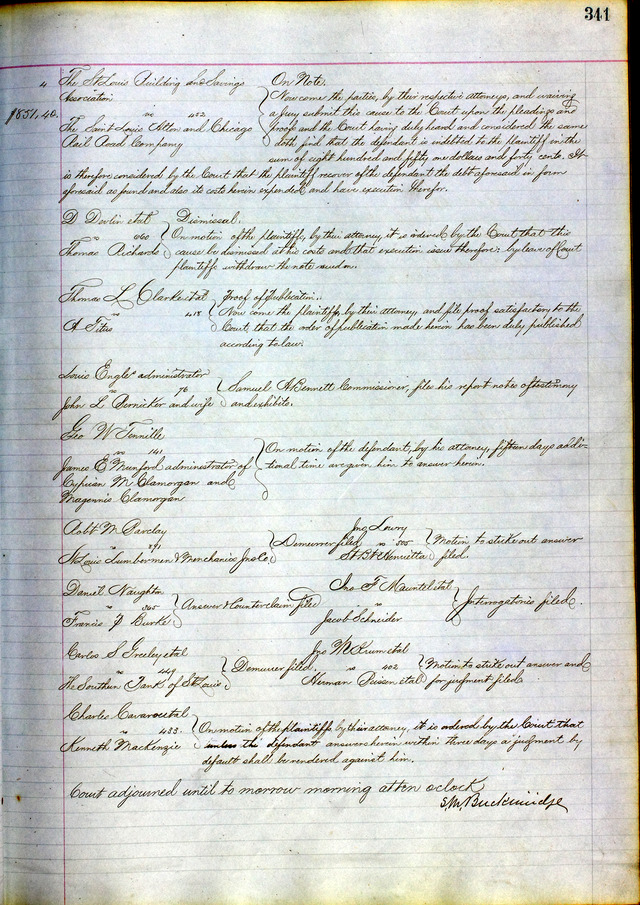 341
4 The St Louis Building and Savings Association
$851.40.
vs 452
The Saint Louis Alton and Chicago Rail Road Company
On Note.
Now come the parties, by their respective attorneys, and waiving
a jury submit this cause to the Court upon the pleadings and
proofs and the Court having duly heard and considered the same
doth find that the defendant is indebted to the plaintiff in the
sum of eight hundred and fifty one dollars and forty cents. It
is therefore considered by the Court that the plaintiff recover of the defendant the debt aforesaid in form
aforesaid as found and also its costs herein expended and have execution therefor.
D Devlin et al
vs 660
Thomas Richards
Dismissal.
On motion of the plaintiffs, by their attorney, it is ordered by the Court that this
cause be dismissed at his costs and that execution issue therefor: by leave of Court
plaintiffs withdraw the note sued on.
Thomas L Clarke et al
vs 418
A Titus
Proof of Publication.
Now come the plaintiffs, by their attorney, and file proof satisfactory to the
Court, that the order of publication made herein has been duly published
according to law.
Louis Engler administrator
vs 76
John L Bernicker and wife
Samuel A Bennett Commissioner, files his report notes of testimony
and exhibits.
Geo W Tennille
vs 141
James E Munford administrator of
Cyprian M Clamorgan and
Magennis Clamorgan
On motion of the defendant, by his attorney, fifteen days addi-
tional time are given him to answer herein.
Robt M Barclay
vs 291
St Louis Lumbermen & Mechanics Ins Co.
Demurrer filed
Jno Lowry
vs 505
St B Henrietta
Motion to strike out answer
filed.
Daniel Naughton
vs 365
Francis J Burke
Answer & Counterclaim filed
Jno F Mauntel et al
vs
Jacob Schneider
Interrogatories filed.
Carlos S Greeley et al
vs 449
The Southern Bank of St Louis
Demurrer filed.
Jno M Krum et al
vs 402
Herman et al
Motion to strike out answer and
for judgment filed
Charles Cavaroc et al
vs 433.
Kenneth Mackenzie
On motion of the plaintiffs by their attorney, it is ordered by the Court that
unless the defendant answers herein within three days a judgment by
default shall be rendered against him.
Court adjourned until to morrow morning at ten o'clock
S. M. Breckinridge